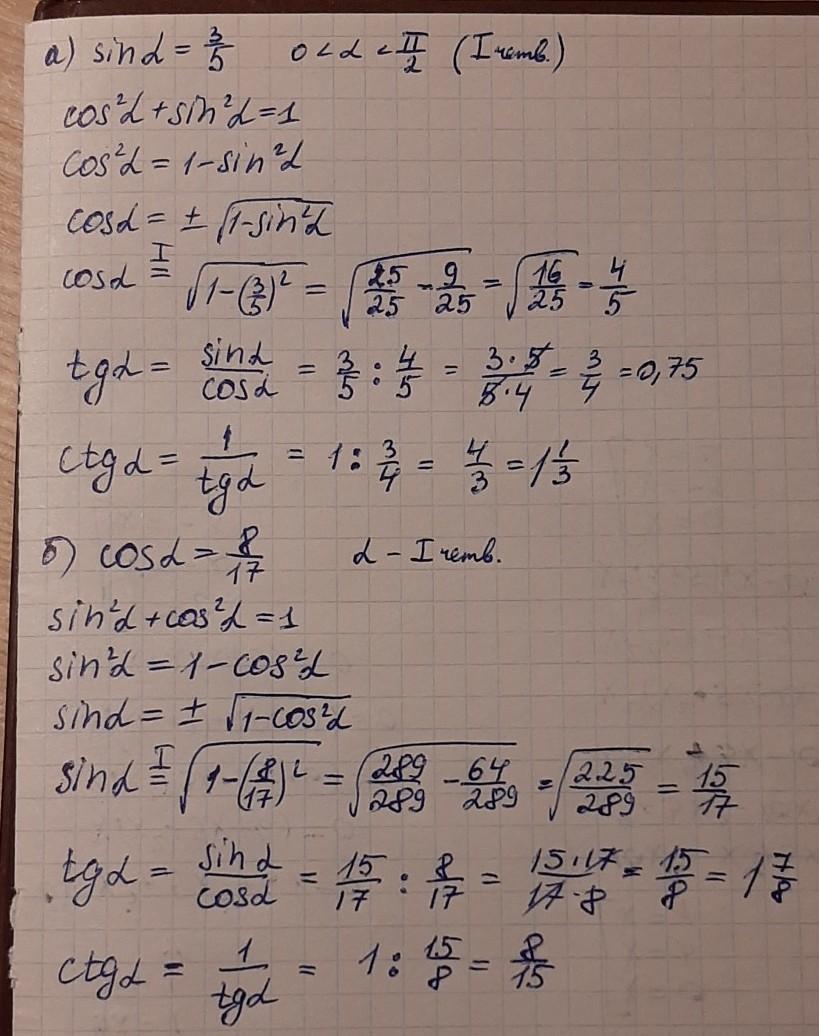 а) sinα = 3/5 0 < α < π/2 (I четв.)
cos²α + sin²α = 1
cos²α = 1 - sin²α
cosα = ± √(1 - sin²α)
cosα =ᴵ √(1 - (3/5)²) = √(25/25 - 9/25) = √(16/25) = 4/5
tgα = sinα/cosα = 3/5 : 4/5 = (3·5)/(5·4) = 3/4 = 0,75
ctgα = 1/tgα = 1 : 3/4 = 4/3 = 1 1/3
б) cosα = 8/17 α - I четв.
sin²α + cos²α = 1
sin²α = 1 - cos²α
sinα = ± √(1 - cos²α)
sinα =ᴵ √(1 - (8/17)²) = √(289/289 - 64/289) = √(225/289) = 15/17
tgα = sinα/cosα = 15/17 : 8/17 = (15·17)/(17·8) = 15/8 = 1 7/8
ctgα = 1/tgα = 1 : 15/8 = 8/15